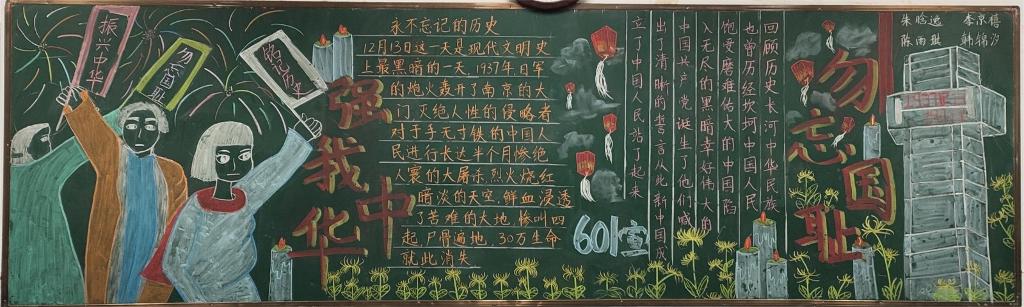 振兴中华
勿忘国耻
铭记历史
强我中华
永不忘记的历史
12月13日这一天是现代文明史
上最黑暗的一天,1937年,日军
的炮火轰开了南京的大
门,灭绝人性的侵略者
对于手无寸铁的中国人
民进行长达半个月惨绝
人寰的大屠杀.烈火烧红
暗淡的天空,鲜血浸透
了苦难的大地,惨叫四
起,尸骨遍地,30万生命
就此消失
601宣
回顾历史长河中华民族
也曾历经坎坷中国人民
饱受磨难偌大的中国陷
入无尽的黑暗幸好伟大的
中国共产党诞生了他们喊
出了清晰的誓言从此新中国成
立了中国人民站了起来
勿忘国耻
朱晗逸 李京禧
陈雨琪 韩锦汐